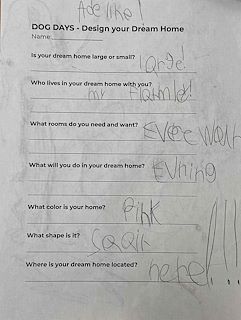 Adelike!
DOG DAYS - Design your Dream Home
Name:
Is your dream home large or small?
large!
Who lives in your dream home with you?
my
What rooms do you need and want?
EVree
What will you do in your dream home?
EVning
What color is your home?
Pink
What shape is it?
Sqair
Where is your dream home located?
here!